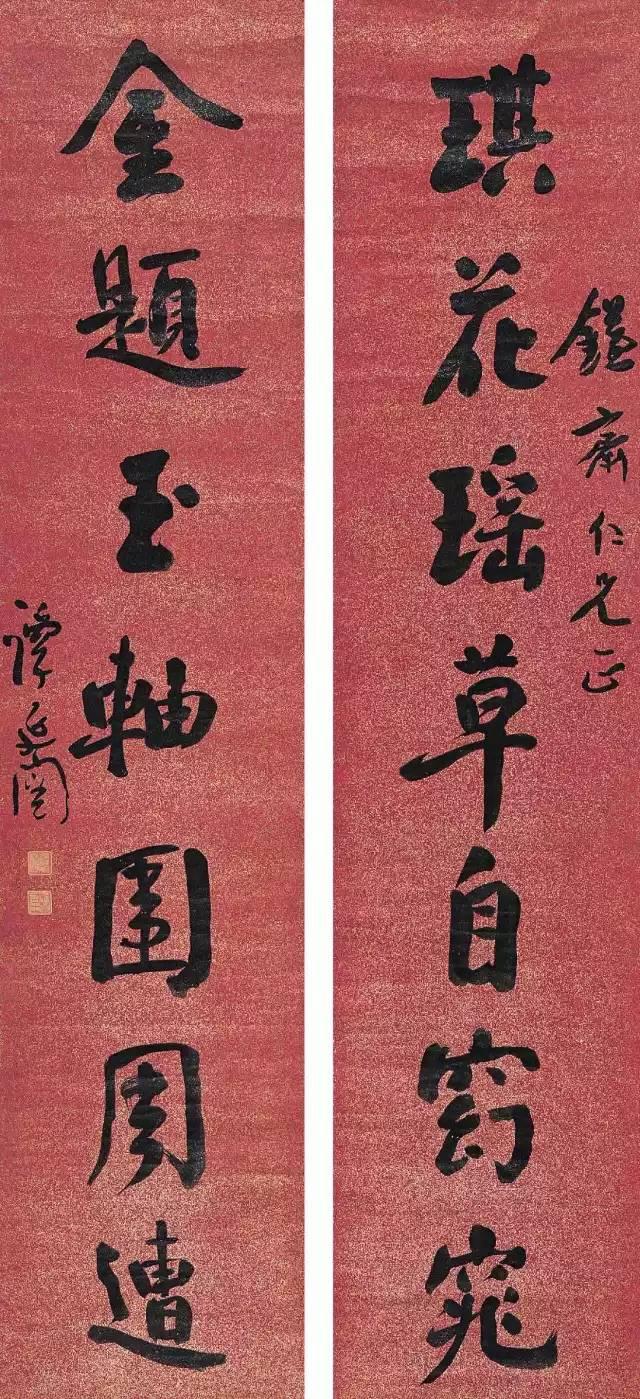 齋仁兄正
琪花瑶草自窈窕
金題玉軸圍周遭
譚延闓